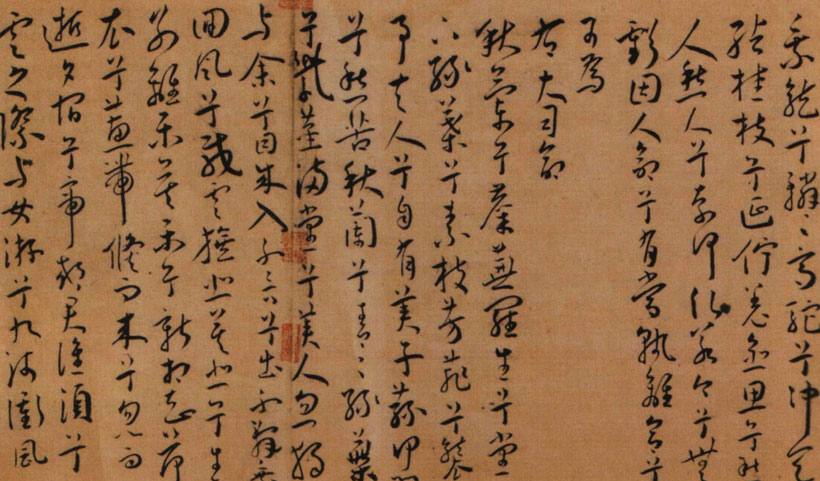 乘龍兮轔〻高駝兮沖天
結桂枝兮延佇羌愈思兮愁
人愁人兮奈何願若今兮無
虧固人命兮有當孰離合兮
可為
右大司命
秋蘭兮蘪蕪羅生兮堂
下綠葉兮素枝芳菲兮襲
予夫人兮自有美子蓀何
兮愁苦秋蘭兮青〻綠葉
兮紫莖滿堂兮美人忽獨
與余兮目成入不言兮出不辭乘
回風兮載雲旗悲莫悲兮生
別離樂莫樂兮新相知荷
衣兮蕙帶儵而來兮忽而
逝夕宿兮帝郊君誰須兮
雲之際與女游兮九河衝風